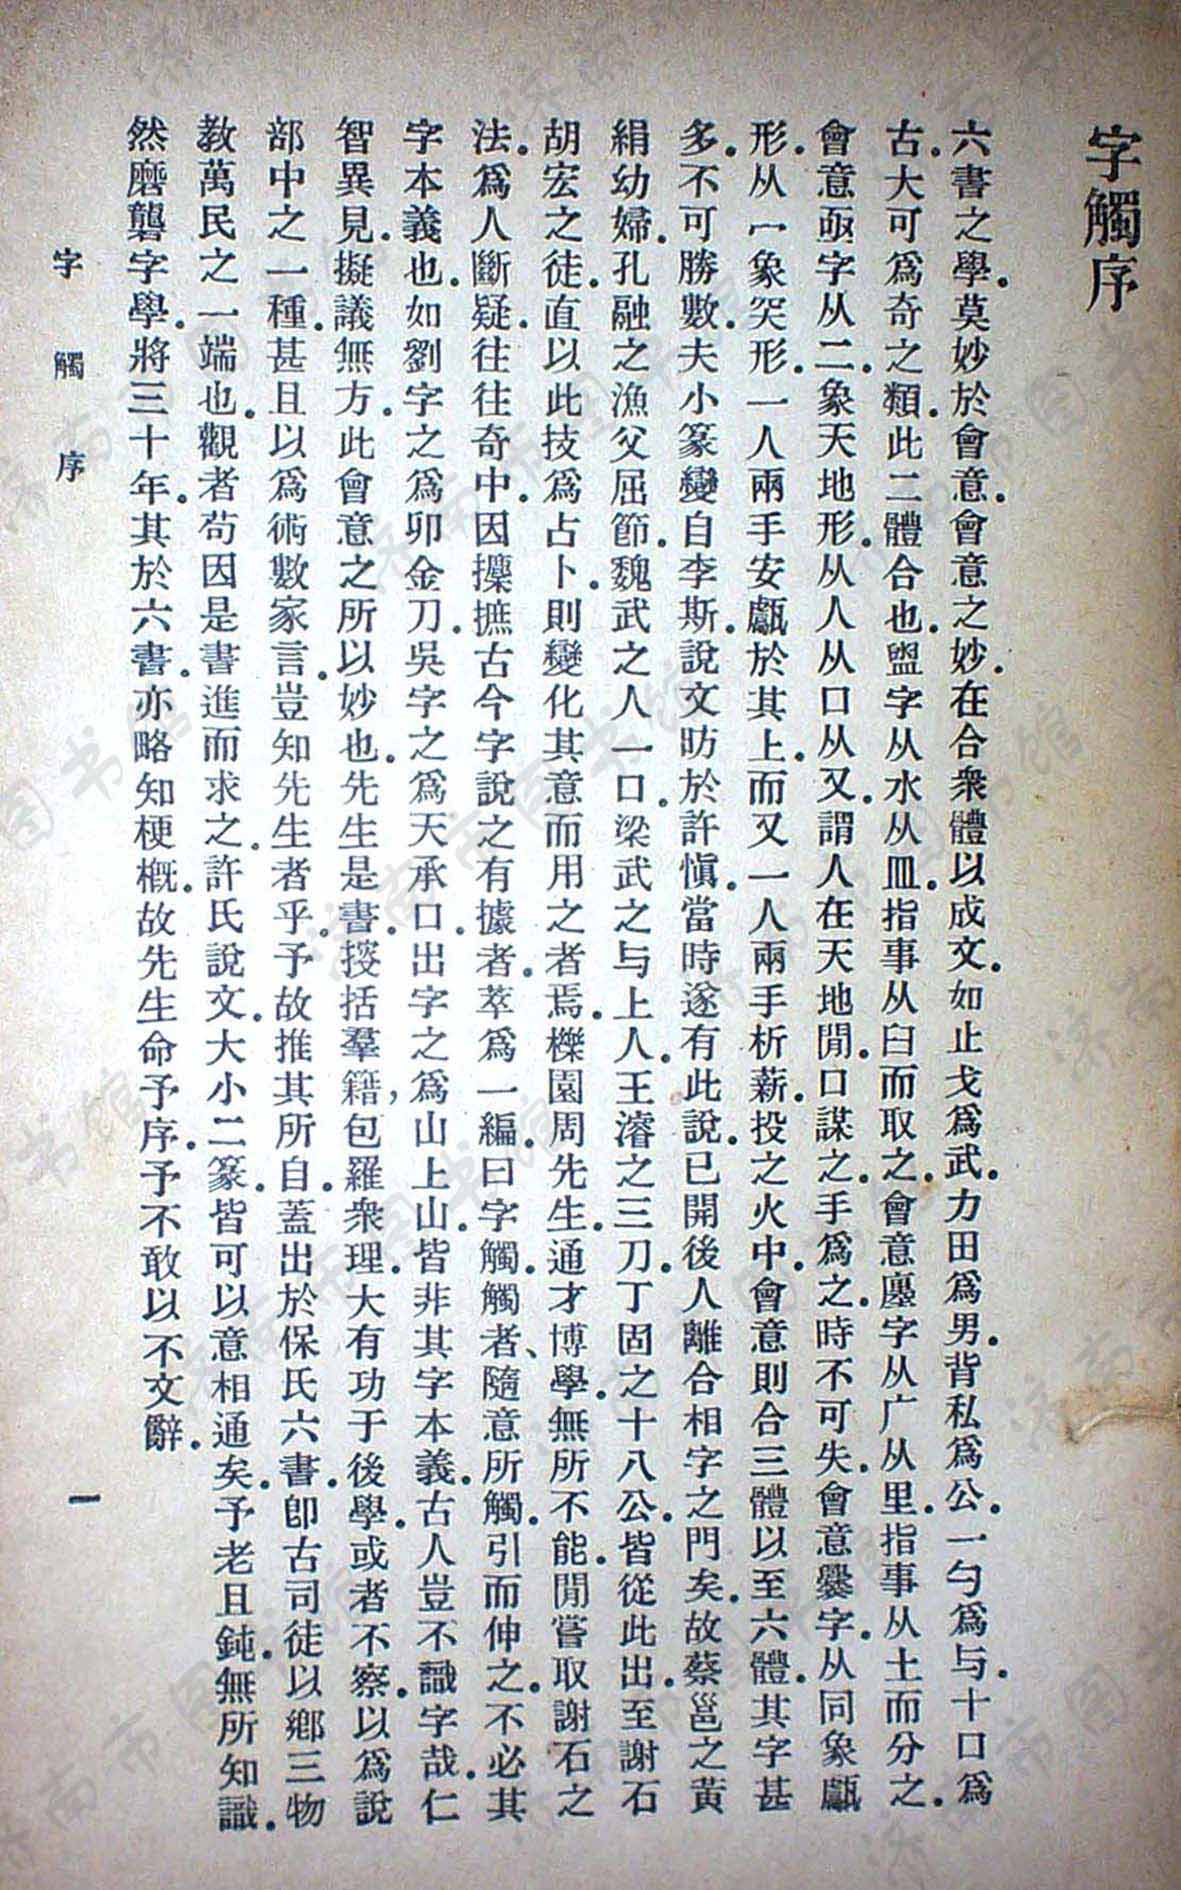 字觸序
六書之學。莫妙於會意。會意之妙。在合衆體以成文。如止戈爲武。力田爲男。背私爲公。一勺爲与。十口爲
古。大可爲奇之類。此二體合也。盥字从水从皿。指事从臼而取之。會意廛字从广从里。指事从土而分之。
會意亟字从二。象天地形。从人从口从又。謂人在天地閒。口謀之。手爲之。時不可失。會意爨字。从同象甗
形。从冖象突形。一人兩手安甗於其上。而又一人兩手析薪。投之火中。會意則合三體以至六體。其字甚
多。不可勝數。夫小篆變自李斯。說文昉於許愼。當時遂有此說。已開後人離合相字之門矣。故蔡邕之黃
絹幼婦。孔融之漁父屈節。魏武之人一口。梁武之与上人。王濬之三刀。丁固之十八公。皆從此出。至謝石
胡宏之徒。直以此技爲占卜。則變化其意而用之者焉。櫟園周先生。通才博學。無所不能。閒嘗取謝石之
法。爲人斷疑。往往奇中。因攈摭古今字說之有據者。萃爲一編。曰字觸。觸者、隨意所觸。引而伸之。不必其
字本義也。如劉字之爲卯金刀。吳字之爲天承口。出字之爲山上山。皆非其字本義。古人豈不識字哉。仁
智異見。擬議無方。此會意之所以妙也。先生是書。按括羣籍，包羅衆理。大有功于後學。或者不察。以爲說
部中之一種。甚且以爲術數家言。豈知先生者乎。予故推其所自。蓋出於保氏六書。卽古司徒以鄉三物
教萬民之一端也。觀者苟因是書進而求之。許氏說文。大小二篆。皆可以意相通矣。予老且鈍。無所知識。
然磨礱字學。將三十年。其於六書。亦略知梗概。故先生命予序。予不敢以不文辭。
字觸序
一
济南市图书馆